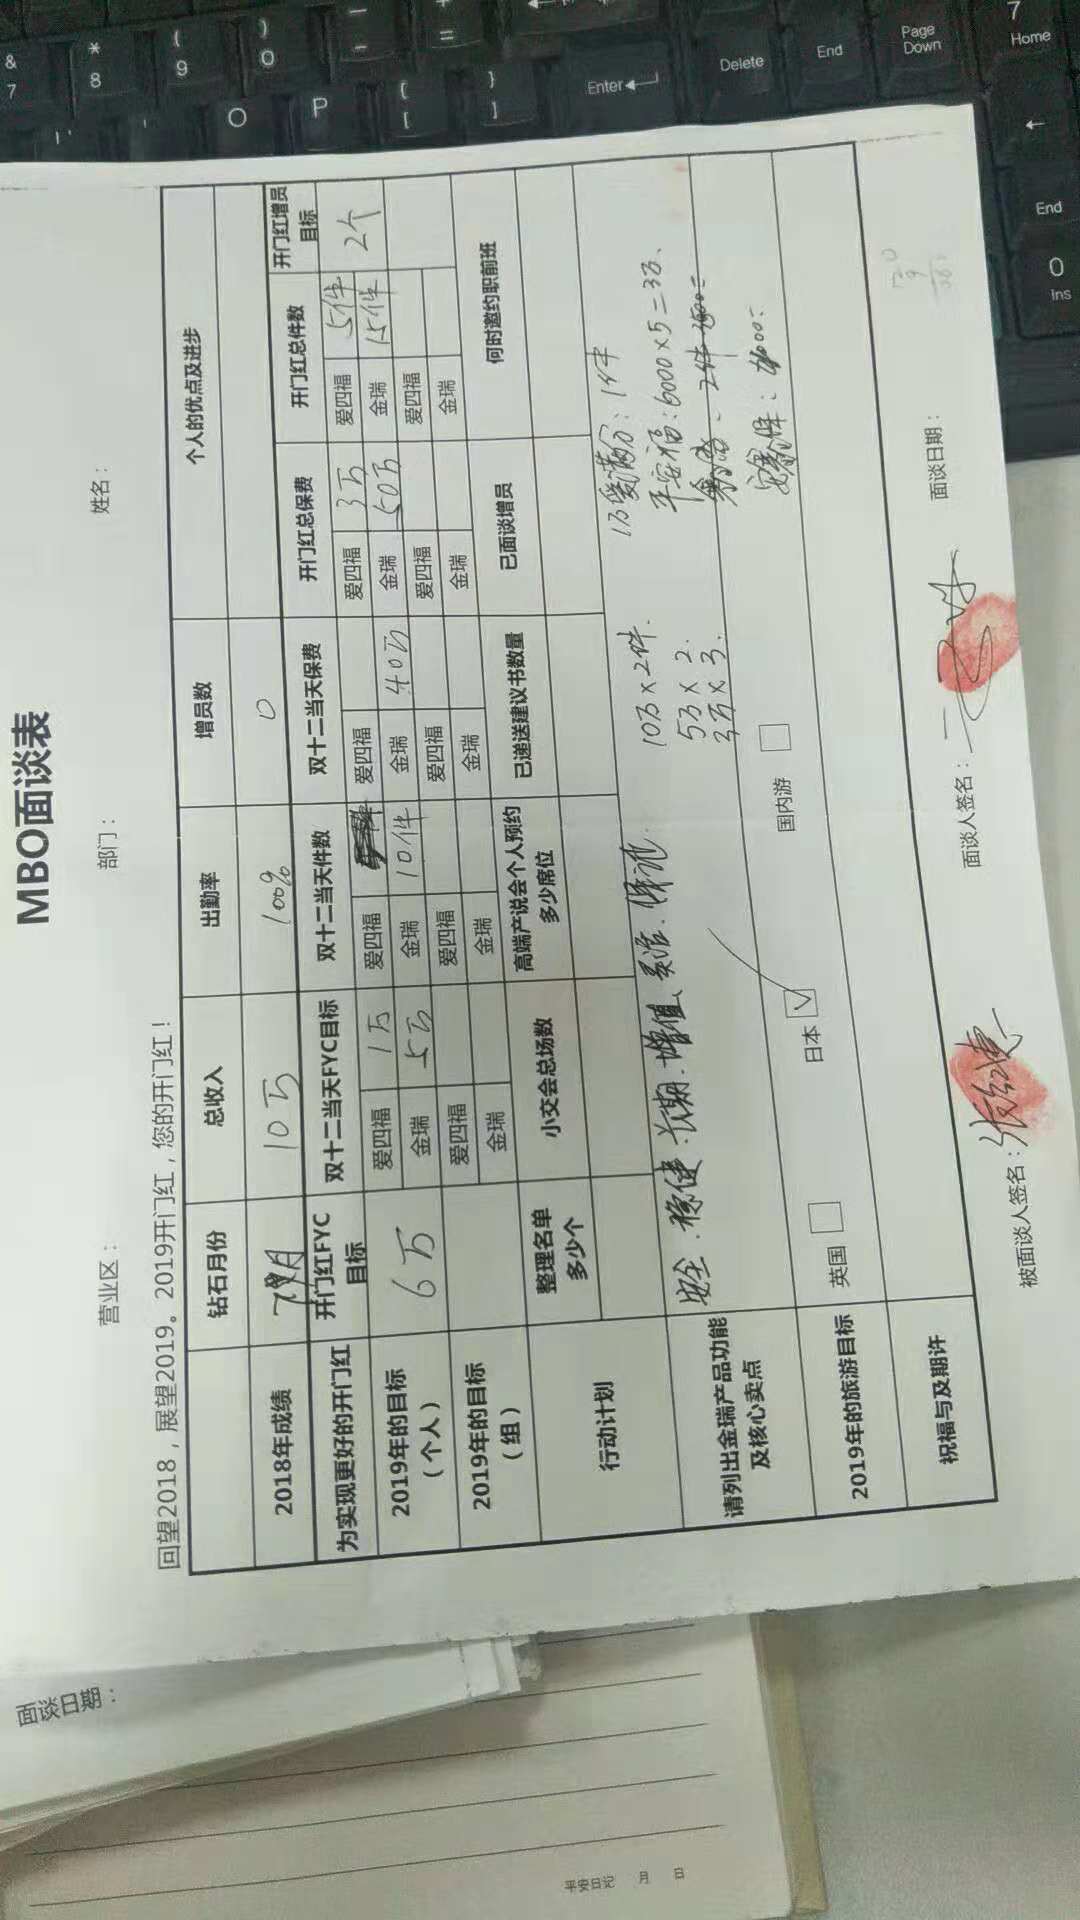 MBO面谈表
营业区： 部门： 姓名：
回望2018，展望2019。2019开门红，您的开门红！
钻石月份 总收入 出勤率 增员数 个人的优点及进步
2018年成绩 10万 100% 0
为实现更好的开门红 开门红FYC目标 双十二当天FYC目标 双十二当天件数 双十二当天保费 开门红总保费 开门红总件数 开门红增员目标
2019年的目标（个人） 6万 爱四福 1万 爱四福 爱四福 爱四福 3万 爱四福 5件 2个
金瑞 5万 金瑞 10件 金瑞 40万 金瑞 50万 金瑞 15件
2019年的目标（组） 爱四福 爱四福 爱四福 爱四福 爱四福
金瑞 金瑞 金瑞 金瑞 金瑞
行动计划 整理名单多少个 小交会总场数 高端产说会个人预约多少席位 已递送建议书数量 已面谈增员 何时邀约职前班
请列出金瑞产品功能及核心卖点 安全．稳健．长期．增值、灵活．保证．
10万×2件．
5万×2．
3万×3．
1万爱满分：1件
平安福：6000×5＝3万、
2019年的旅游目标 英国 日本 国内游
祝福与及期许
被面谈人签名： 面谈人签名： 面谈日期：
面谈日期：
Enter
Delete
End
Page Down
7 Home
End
0 Ins
& 7
* 8
( 9
) 0
O
P
{ [
} ]
+ =